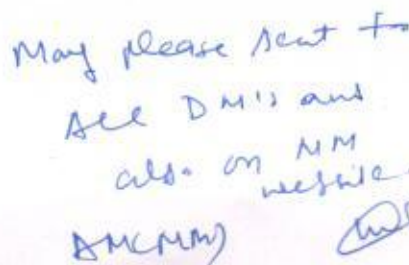 May please sent to
All DM's and
also on MM
website.
AM(MM)